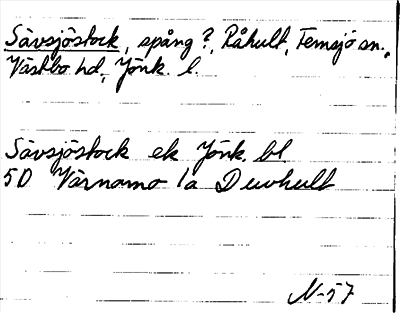 Sävsjöstock, spång?, Råhult, Femsjö sn.,
Västbo hd, Jönk. l.
Sävsjöstock ek Jönk. bl
5D Värnamo 1a Duvhult
N-57